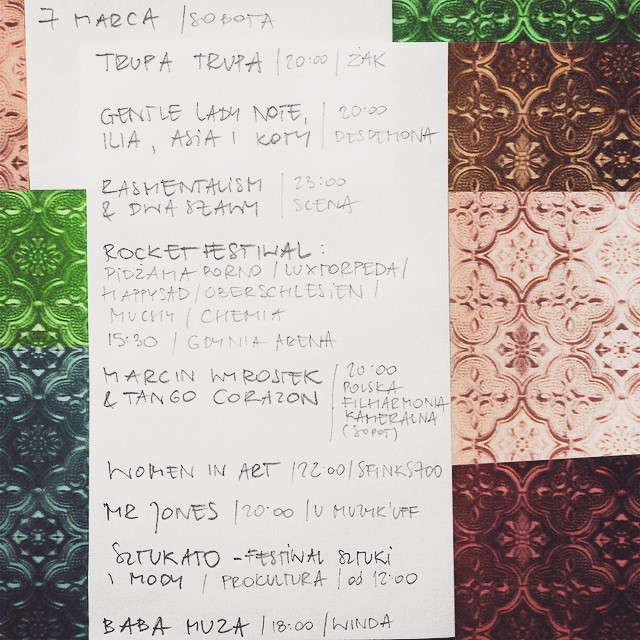 7 MARCA / SOBOTA
TRUPA TRUPA | 20:00 | ŻAK
GENTLE LADY NOTE, | 20:00
ILIA, ASIA I KOTY | DESDEMONA
RASMENTALISM | 23:00
& DWA SŁAWY | SCENA
ROCKET FESTIWAL:
PIDŻAMA PORNO / LUXTORPEDA /
HAPPYSAD / OBERSCHLESIEN /
MUCHY / CHEMIA
15:30 / GDYNIA ARENA
MARCIN WYROSTEK | 20:00
& TANGO CORAZON | POLSKA
FILHARMONIA
KAMERALNA
(SOPOT)
WOMEN IN ART | 22:00 | SFINKS700
MR JONES | 20:00 | U MUZYK'ÓFF
SZTUKATO - FESTIWAL SZTUKI
I MODY / PROKULTURA / od 12:00
BABA MUZA / 18:00 / WINDA